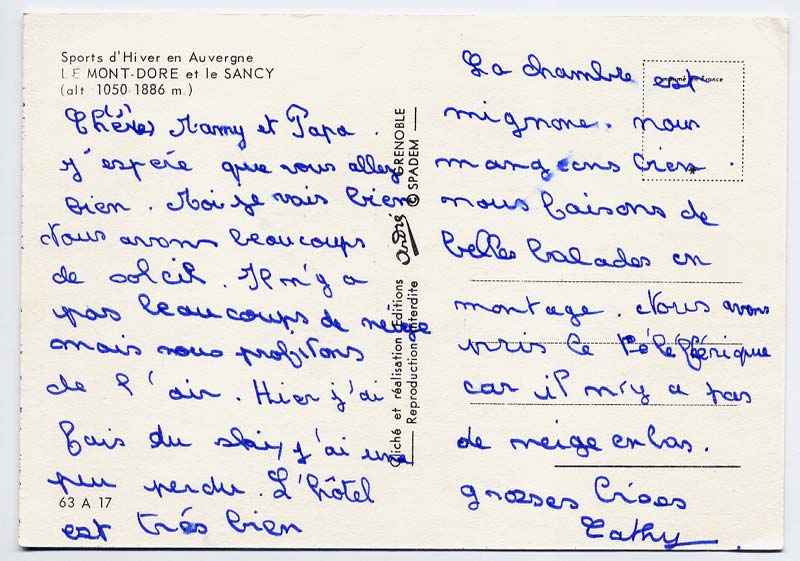 Sports d'Hiver en Auvergne
LE MONT-DORE et le SANCY
(alt 1050-1886 m.)
Chères Mamy et Papa.
j'espére que vous allez
bien. Moi je vais bien
Nous avons beaucoups
de soleil. Il n'y a
pas beaucoups de neige
mais nous profitons
de l'air. Hier j'ai
fais du sky j'ai une
peu perdu. L'hôtel
est trés bien
63 A 17
Cliché et réalisation Editions André GRENOBLE
Reproduction Interdite © SPADEM
Imprimé en France
La chambre est
mignone. nous
mangeons bien.
nous faisons de
belles balades en
montage. Nous avons
pris le téléférique
car il n'y a pas
de neige en bas.
groses bises
Cathy